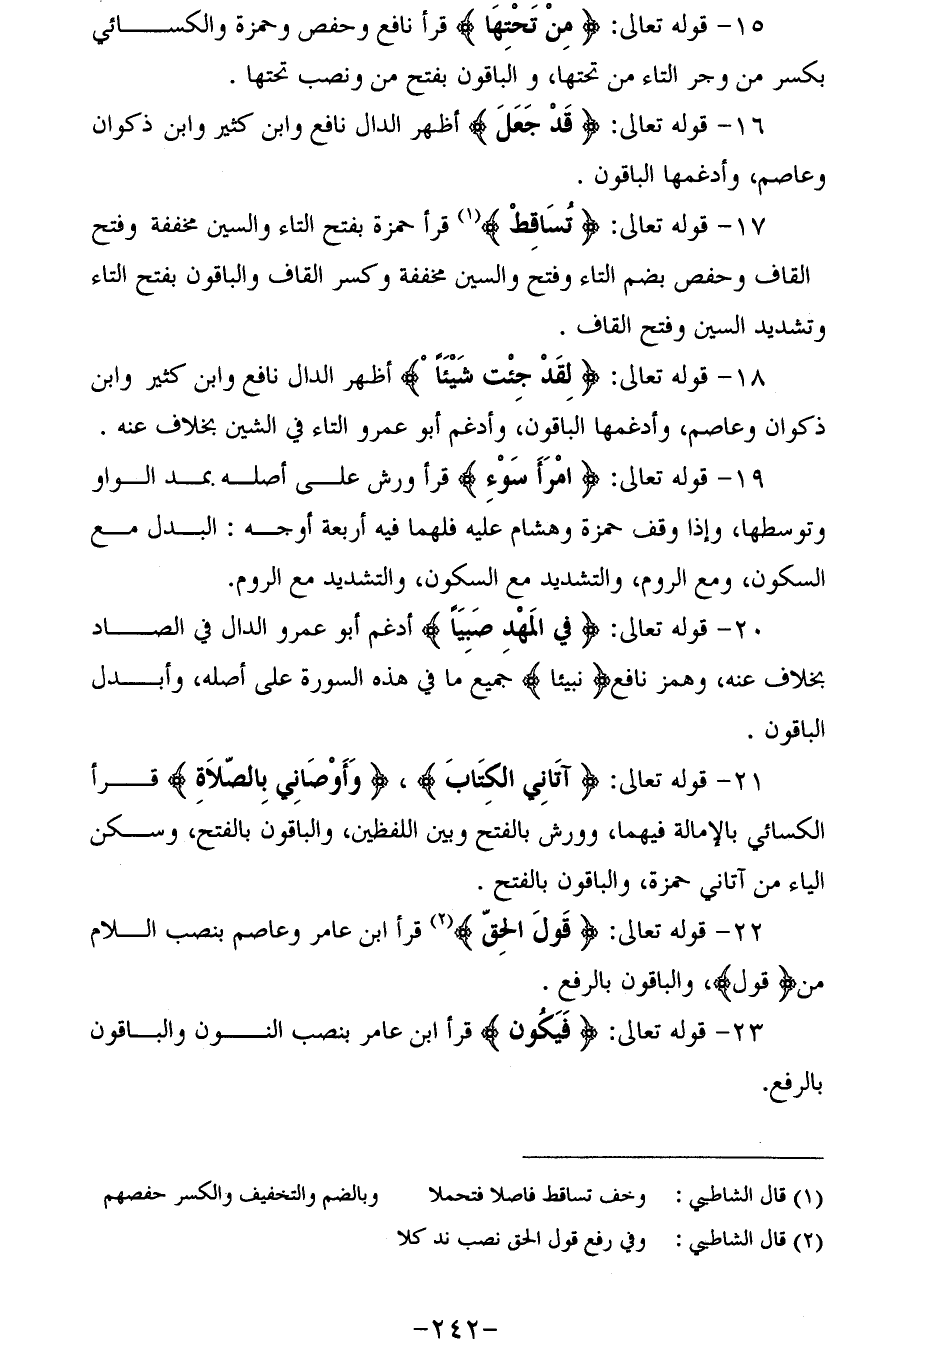 ١٥- قوله تعالى: ﴿ مِنْ تَحْتِهَا ﴾ قرأ نافع وحفص وحمزة والكســـــائي
بكسر من وجر التاء من تحتها، و الباقون بفتح من ونصب تحتها .
١٦- قوله تعالى: ﴿ قَدْ جَعَلَ ﴾ أظهر الدال نافع وابن كثير وابن ذكوان
وعاصم، وأدغمها الباقون .
١٧- قوله تعالى: ﴿ تُسَاقِطْ ﴾(١) قرأ حمزة بفتح التاء والسين مخففة وفتح
القاف وحفص بضم التاء وفتح والسين مخففة وكسر القاف والباقون بفتح التاء
وتشديد السين وفتح القاف .
١٨- قوله تعالى: ﴿ لِقَدْ جِئْت شَيْئَاً ْ ﴾ أظهر الدال نافع وابن كثير وابن
ذكوان وعاصم، وأدغمها الباقون، وأدغم أبو عمرو التاء في الشين بخلاف عنه .
١٩- قوله تعالى: ﴿ امْرَأَ سَوْءٍ ﴾ قرأ ورش علـــى أصلـــه بمـــد الـــواو
وتوسطها، وإذا وقف حمزة وهشام عليه فلهما فيه أربعة أوجـــه : البـــدل مـــع
السكون، ومع الروم، والتشديد مع السكون، والتشديد مع الروم.
٢٠- قوله تعالى: ﴿ في المَهْدِ صَبِيَاً ﴾ أدغم أبو عمرو الدال في الصـــــاد
بخلاف عنه، وهمز نافع﴿ نبيئا ﴾ جميع ما في هذه السورة على أصله، وأبـــدل
الباقون .
٢١- قوله تعالى: ﴿ آتَانِي الكِتَابَ ﴾ ، ﴿ وَأَوْصَانِي بِالصّلاَةِ ﴾ قـــرأ
الكسائي بالإمالة فيهما، وورش بالفتح وبين اللفظين، والباقون بالفتح، وســكن
الياء من آتاني حمزة، والباقون بالفتح .
٢٢- قوله تعالى: ﴿ قَولَ الحَقِّ ﴾(٢) قرأ ابن عامر وعاصم بنصب الـــلام
من﴿ قول﴾، والباقون بالرفع .
٢٣- قوله تعالى: ﴿ فَيَكُون ﴾ قرأ ابن عامر بنصب النـــــون والبـــاقون
بالرفع.
(١) قال الشاطبي : وخف تساقط فاصلا فتحملا وبالضم والتخفيف والكسر حفصهم
(٢) قال الشاطبي : وفي رفع قول الحق نصب ند كلا
-٢٤٢-